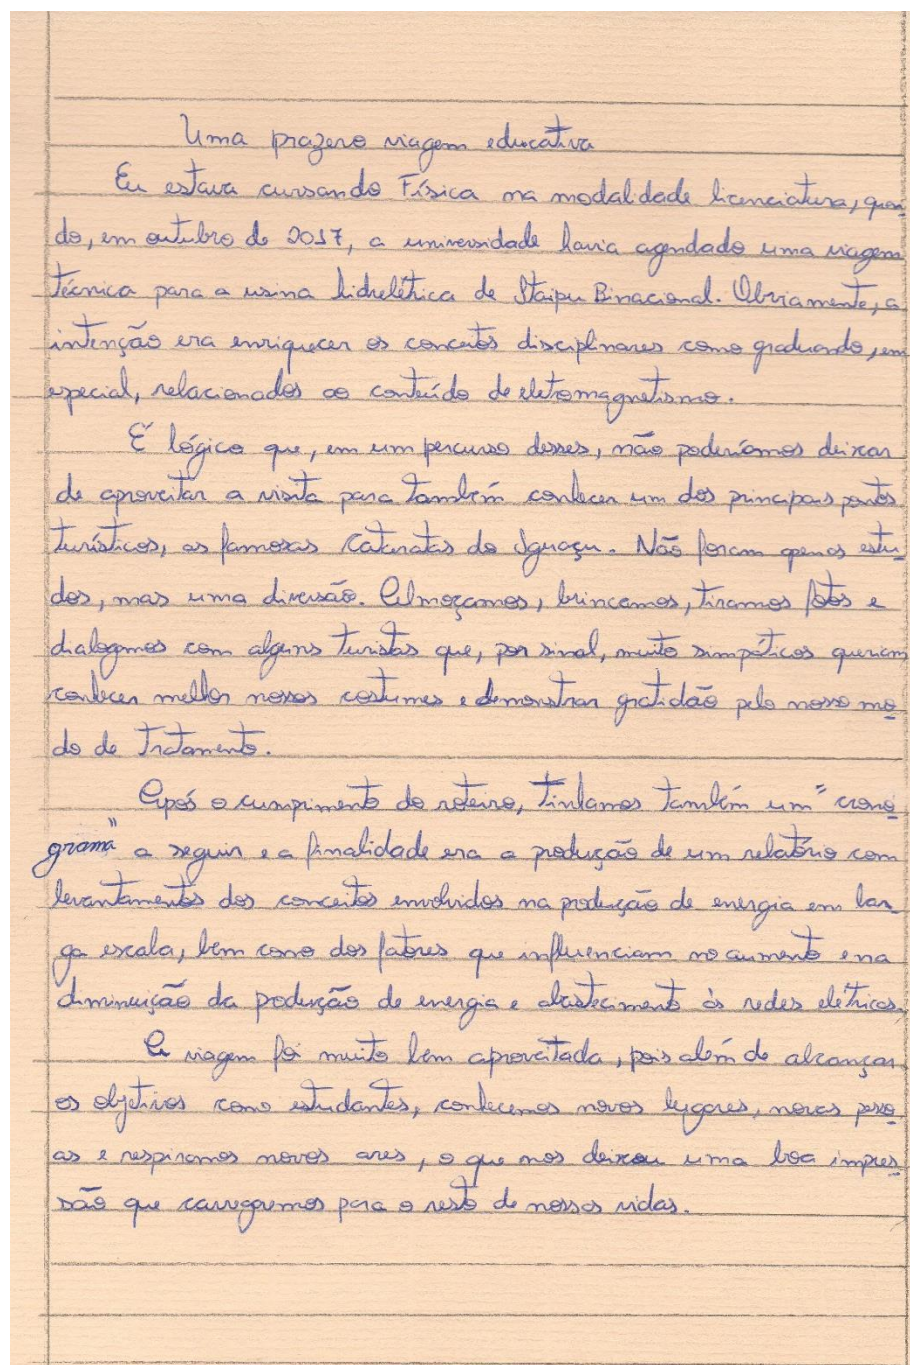 Uma prazero viagem educativa
Eu estava cursando Física na modalidade licenciatura, quan-
do, em outubro de 2017, a universidade havia agendado uma viagem
técnica para a usina hidrelétrica de Itaipu Binacional. Obviamente, a
intenção era enriquecer os conceitos disciplinares como graduando, em
especial, relacionados ao conteúdo de eletromagnetismo.
É lógico que, em um percurso desses, não poderíamos deixar
de aproveitar a visita para também conhecer um dos principais pontos
turísticos, as famosas Cataratas do Iguaçu. Não foram apenas estu-
dos, mas uma diversão. Almoçamos, brincamos, tiramos fotos e
dialogamos com alguns turistas que, por sinal, muito simpáticos queriam
conhecer melhor nossos costumes e demonstrar gratidão pelo nosso mo-
do de tratamento.
Após o cumprimento do roteiro, tínhamos também um "crono-
grama" a seguir e a finalidade era a produção de um relatório com
levantamentos dos conceitos envolvidos na produção de energia em lar-
ga escala, bem como dos fatores que influenciam no aumento e na
diminuição da produção de energia e abastecimento às redes elétricas.
A viagem foi muito bem aproveitada, pois além de alcançar
os objetivos como estudantes, conhecemos novos lugares, novas pesso-
as e respiramos novos ares, o que nos deixou uma boa impres-
são que carregaremos para o resto de nossas vidas.